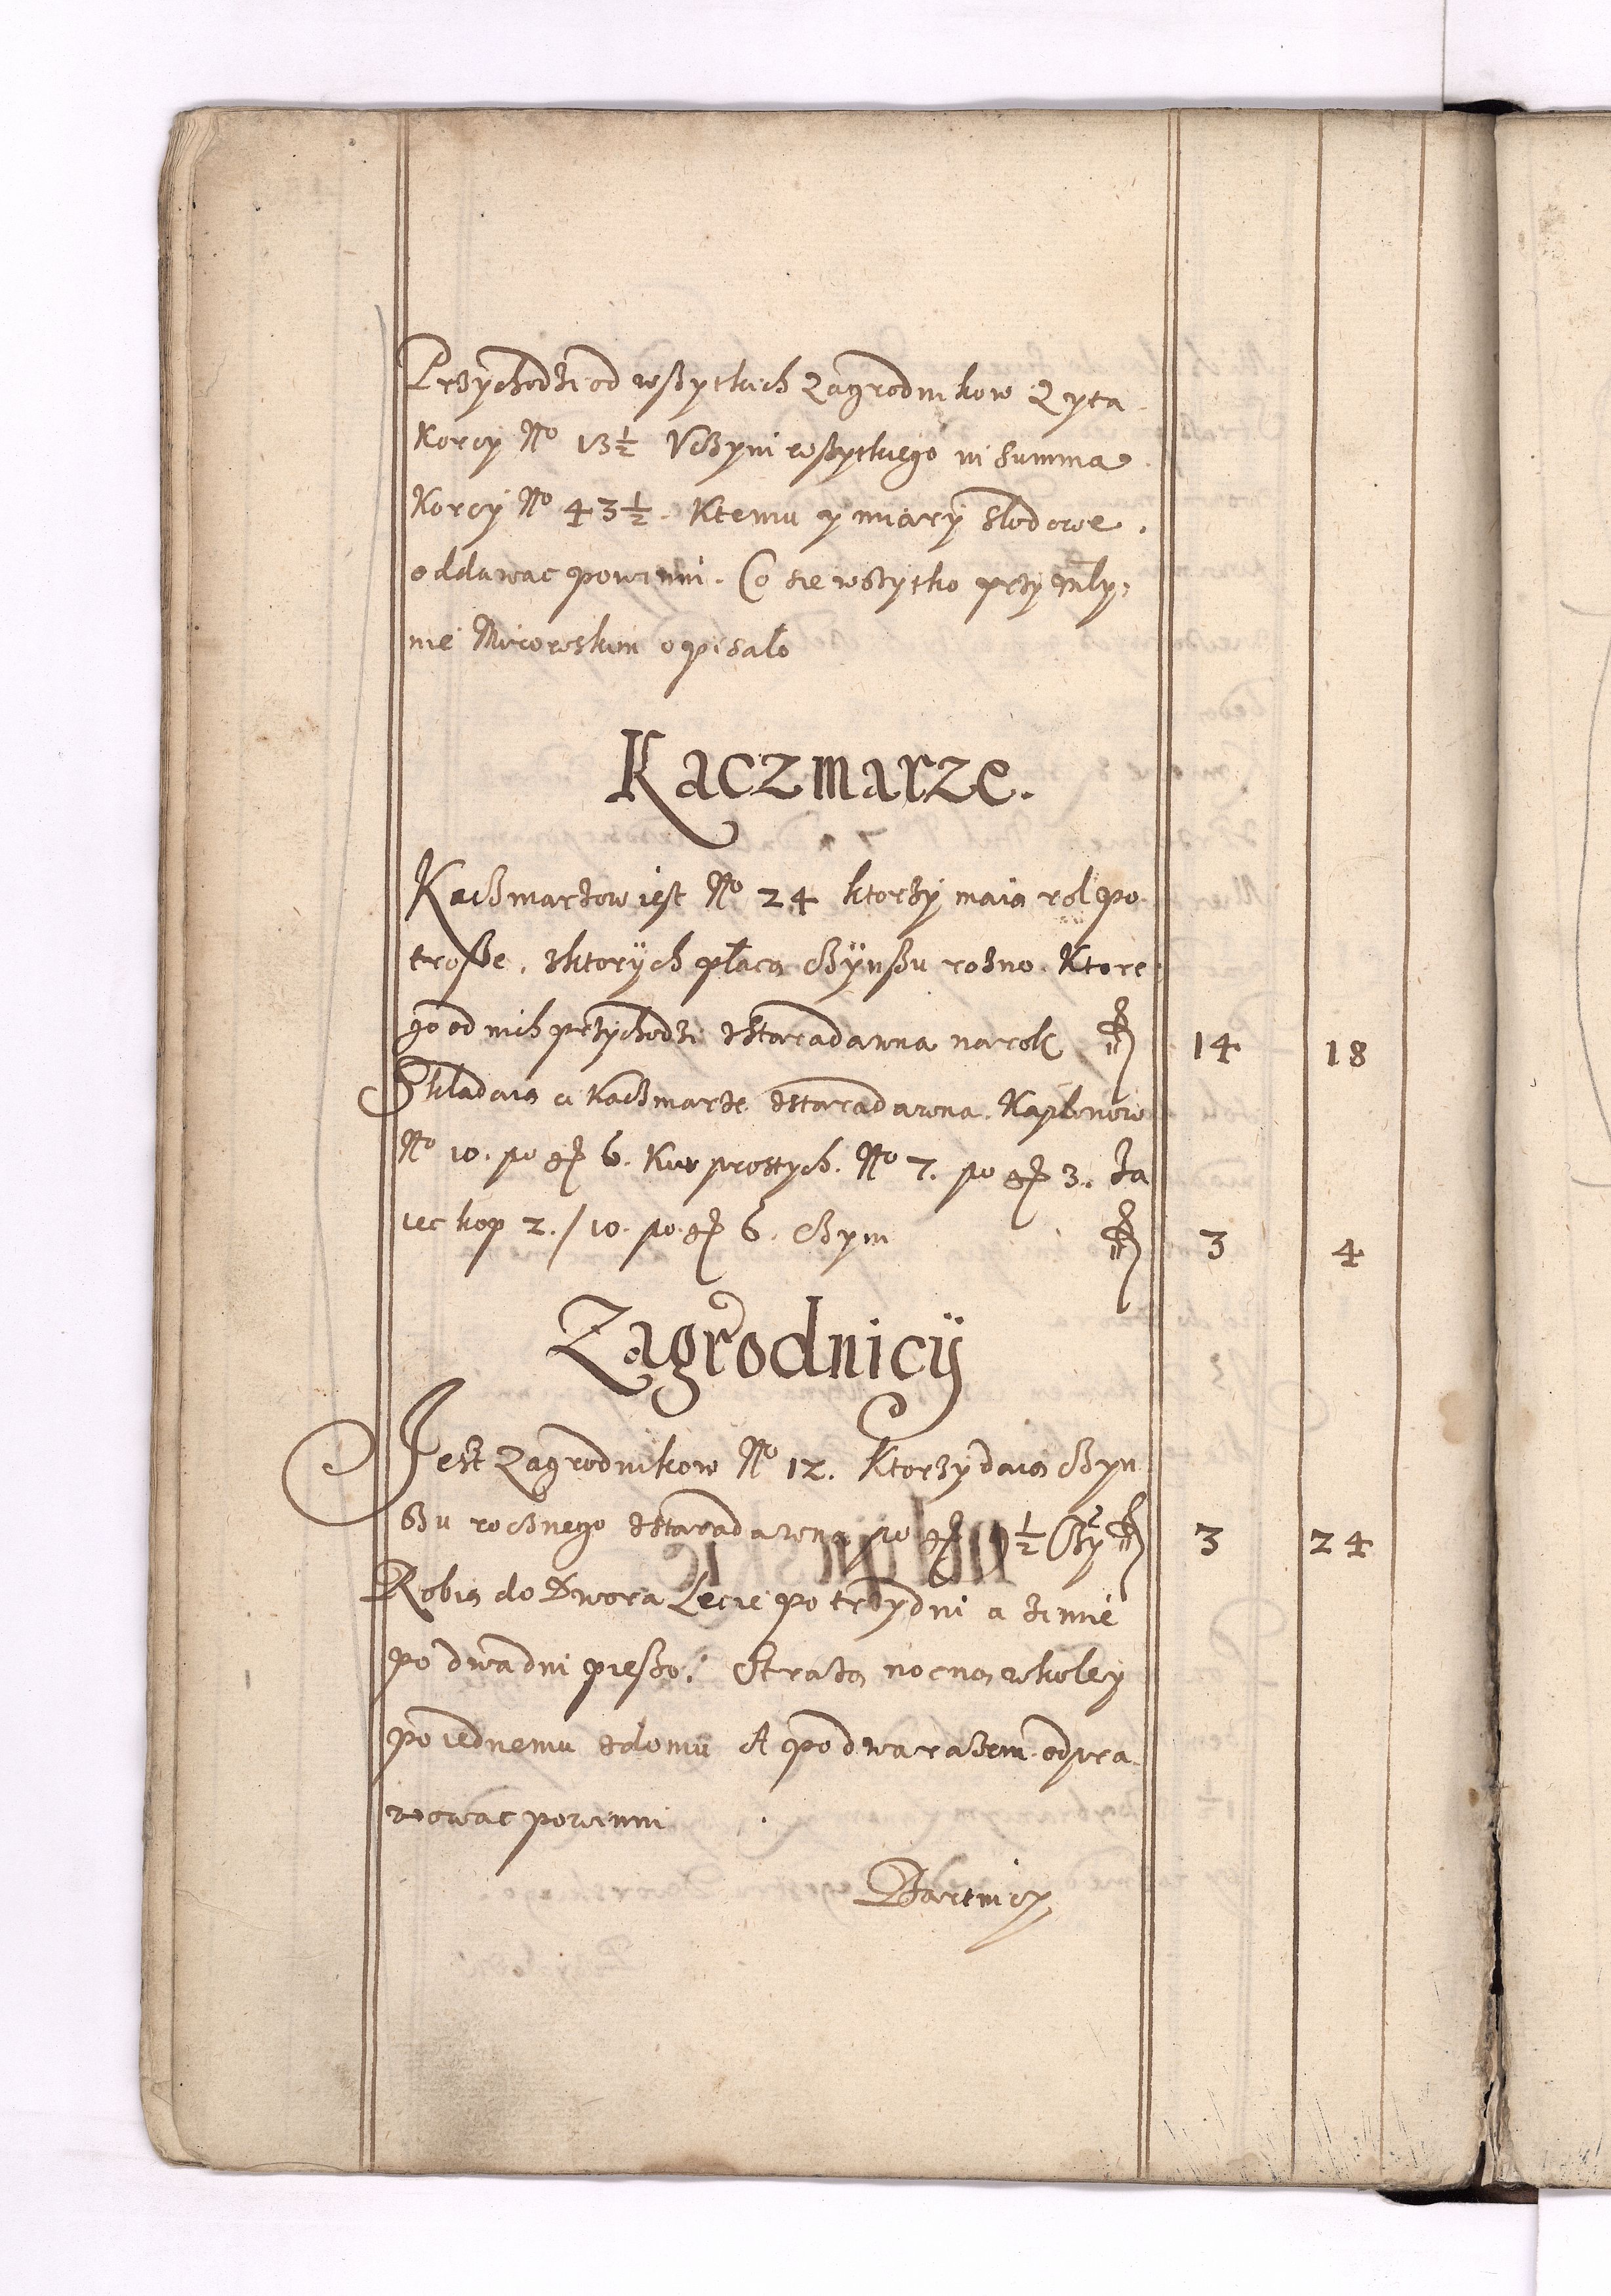 Przychodzi od wszytkich Zagrodnikow Zyta
Korcy No 13½ Vczyni wszytkiego in Summa
Korcy No 43½. Ktemu y miary Slodowe.
oddawac powinni. Co sie wszytko przy Mły,
nie opisało
Kaczmarze.
Kaczmarzow iest No 24 ktorzy maia rol po
trosze. zktorych płaca czynszu rozno. Ktore,
go od nich przychodzi zstaradawna narok 14 18
Skladaia ci Kaczmarze zstaradawna. Kapłonow
No 10. po gr 6. Kur prostych. No 7. po gr 3. Ja
iec kop 2./10. po gr 6. czyni 3 4
Zagrodnicÿ
Jest Zagrodnikow No 12. Ktorzy daia czyn
szu rocznego zstaradawna po gr ½ Czy 3 24
Robia do Dwora Lecie po trzy dni a zimie
po dwa dni pieszo. Straza nocna wkoley
po iednemu zdomu A po dwa razem odpra
wowac powinni
Bartnicy